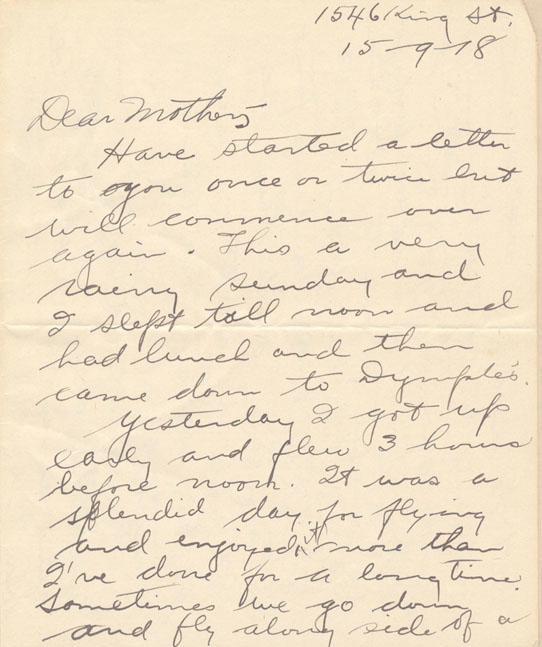 1546 King St.
15-9-18
Dear Mother,
Have started a letter
to you once or twice but
will commence over
again. This a very
rainy Sunday and
I slept till noon and
had lunch and then
came down to Dymple's.
Yesterday I got up
early and flew 3 hours
before noon. It was a
splendid day for flying
and enjoyed it more than
I've done for a long time.
Sometimes we go down
and fly along side of a